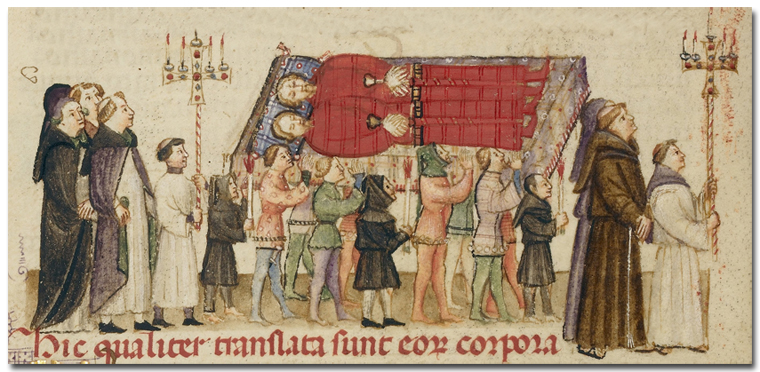 Hic qualiter translata sunt eoꝝ corpora